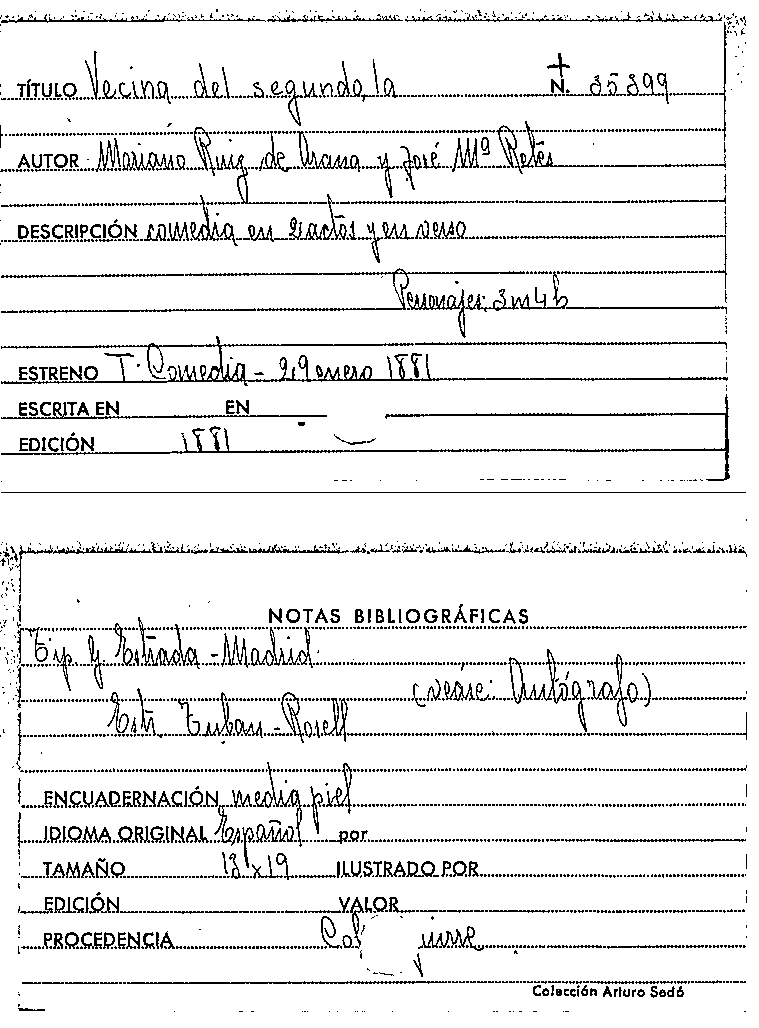 TÍTULO Vecina del segundo, la N. 35399
AUTOR Mariano Ruiz de Arana y José Mª Retes
DESCRIPCIÓN comedia en 2 actos y en verso
Personajes: 3m4h
ESTRENO T. Comedia - 29 enero 1881
ESCRITA EN EN
EDICIÓN 1881
NOTAS BIBLIOGRÁFICAS
Tip G Estrada - Madrid
(veáse: Autógrafo)
Estr. Tubau - Rosell
ENCUADERNACIÓN media piel
IDIOMA ORIGINAL Español por
TAMAÑO 13 x 19 ILUSTRADO POR
EDICIÓN VALOR
PROCEDENCIA
Colección Arturo Sedó